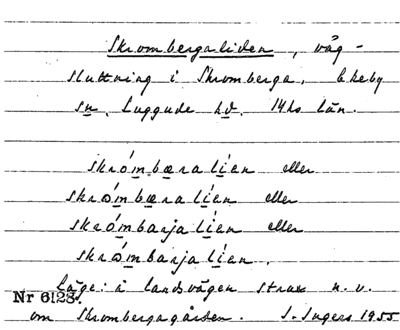 Skrombergaliden, väg-
sluttning i Skromberga, Ekeby
sn, Luggude hd, Mhs län.
skrómbæra líen eller
skrómbæra líen eller
skrómbarja líen eller
skrómbarja líen.
Läge: i landsvägen strax n.v.
Nr 6128.
om Skrombergagården. S. Ingers 1955